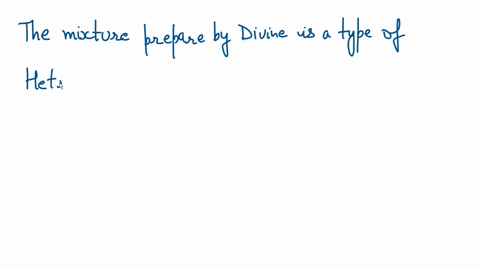 The mixture prepare by Divine is a type of
Het